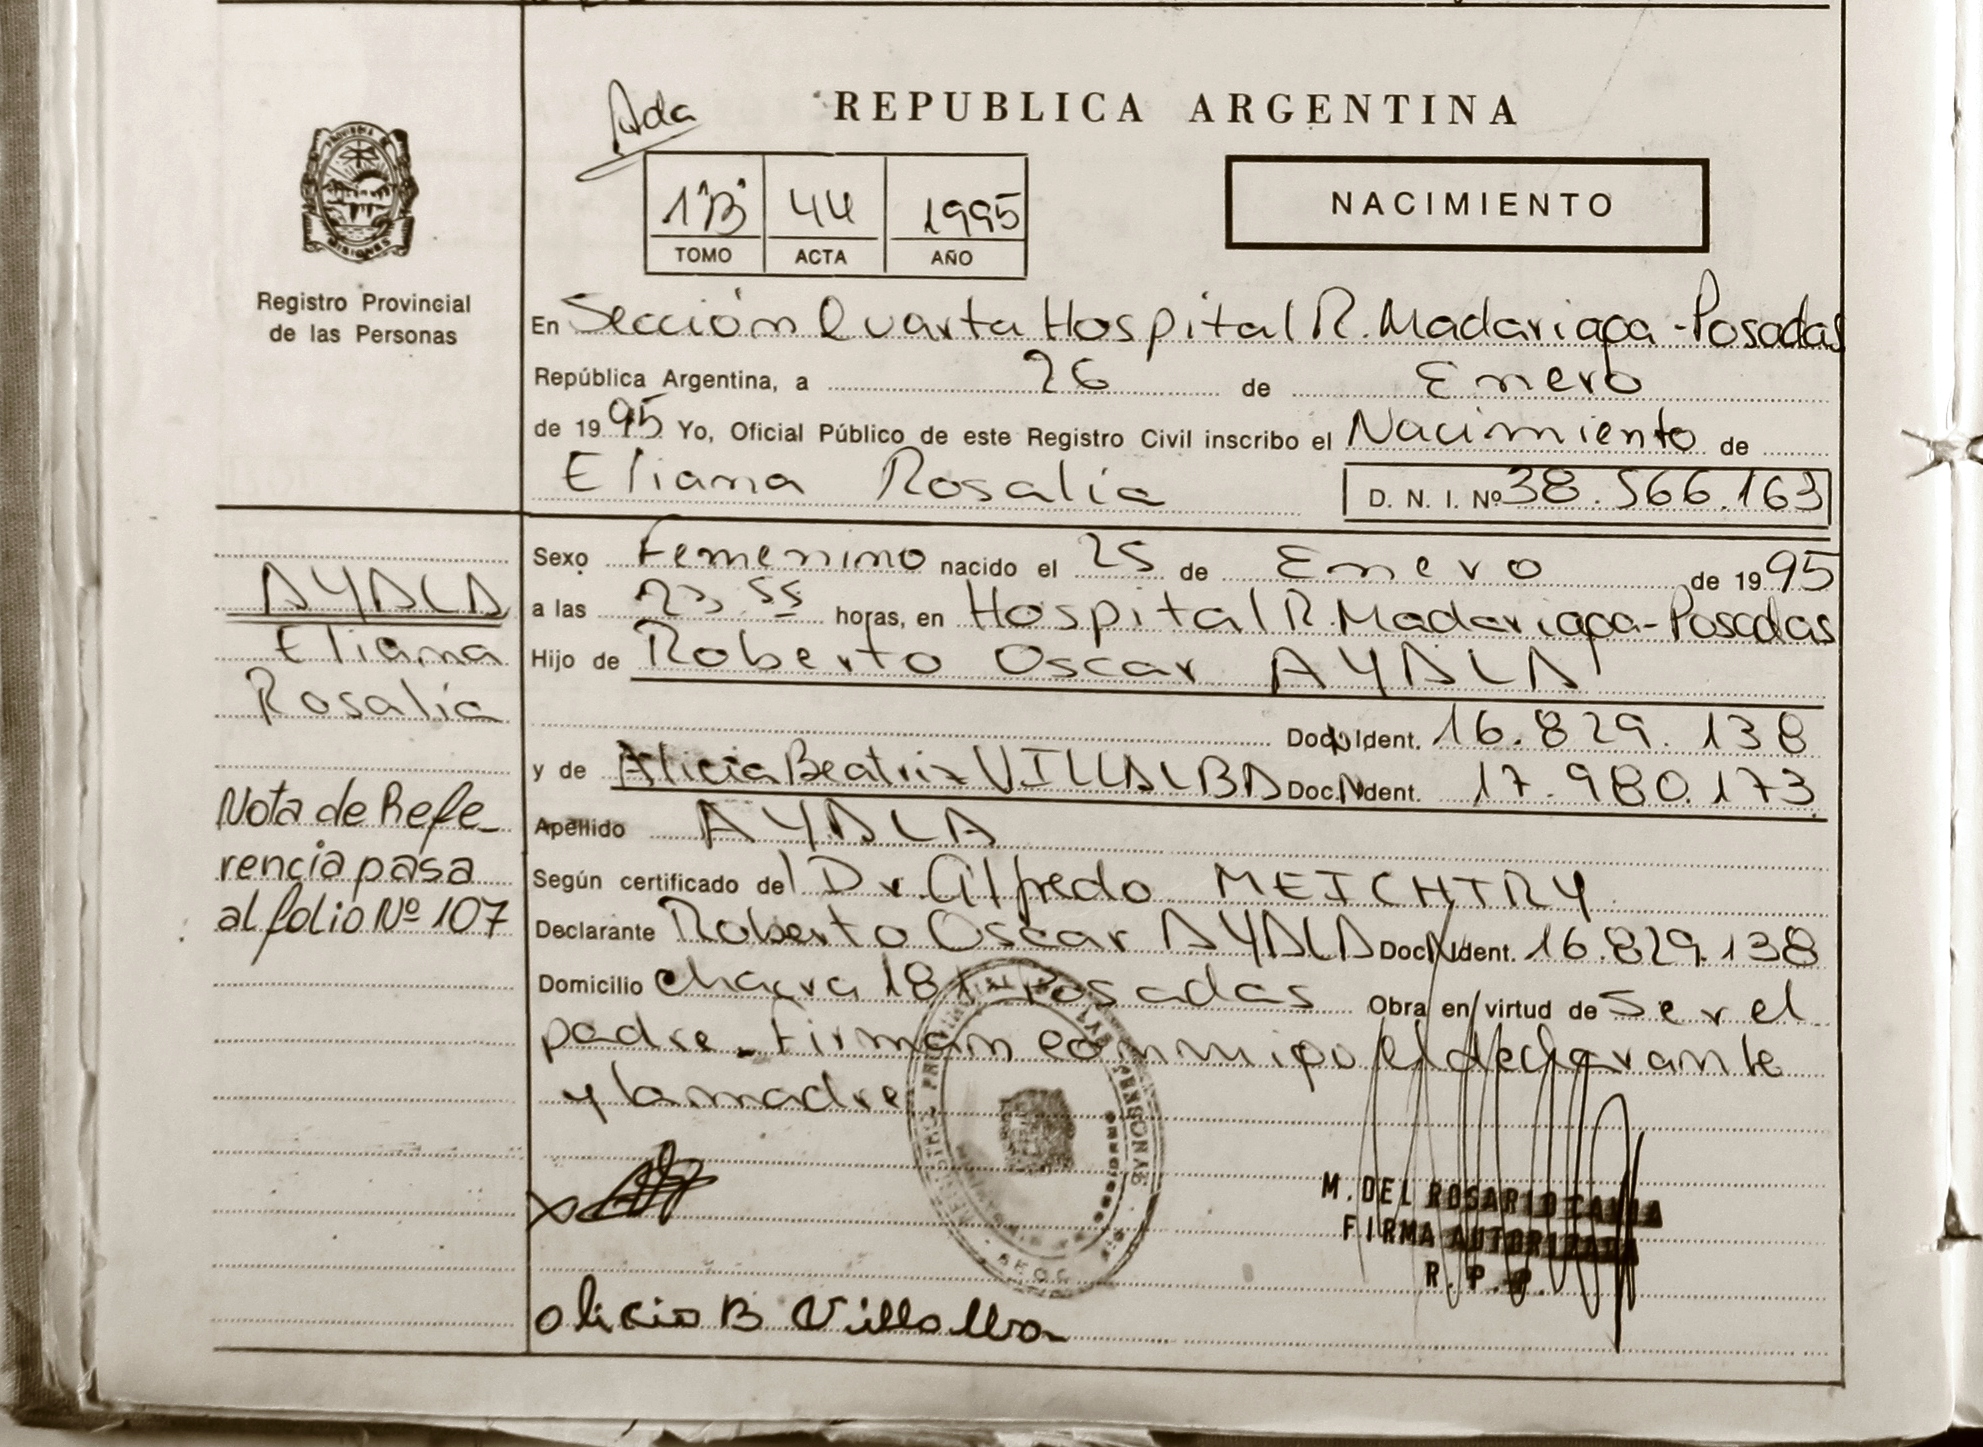 Ada
REPUBLICA ARGENTINA
1"B" 44 1995
TOMO ACTA AÑO
NACIMIENTO
MISIONES
Registro Provincial
de las Personas
En Sección Cuarta Hospital R. Madariaga - Posadas
República Argentina, a 26 de Enero
de 1995 Yo, Oficial Público de este Registro Civil inscribo el Nacimiento de
Eliana Rosalia D. N. I. Nº 38.566.163
Sexo Femenino nacido el 25 de Enero de 1995
a las 23,55 horas, en Hospital R. Madariaga - Posadas
Hijo de Roberto Oscar AYALA
Doc. Ident. 16.829.138
y de Alicia Beatriz VILLALBA Doc. Ident. 17.980.173
Apellido AYALA
Según certificado del Dr Alfredo MEICHTRY
Declarante Roberto Oscar AYALA Doc. Ident. 16.829.138
Domicilio chacra 181 Posadas Obra en virtud de Ser el
padre - Firman conmigo el declarante
y la madre
AYALA
Eliana
Rosalia
Nota de Refe-
rencia pasa
al folio Nº 107
M. DEL ROSARIO
FIRMA AUTORIZADA
R. P. P.
alicia B Villalba